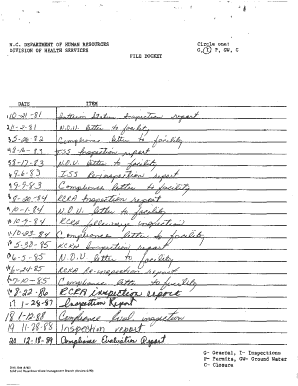 N.C. DEPARTMENT OF HUMAN RESOURCES
DIVISION OF HEALTH SERVICES
Circle one:
G, I, P, GW, C
FILE POCKET
DATE ITEM
1 10-21-81 Interim Status Inspection report
2 11-2-81 N.O.V. letter to facility
3 5-26-82 Compliance letter to facility
ISS Inspection report
5 8-17-83 N.O.V. letter to facility
6 9-6-83 ISS Reinspection report
7 9-9-83 Compliance letter to facility
8 8-20-84 RCRA Inspection report
9 10-1-84 N.O.V. letter to facility
10 10-9-84 RCRA followup inspection
11 10-23-84 Compliance letter to facility
12 5-30-85 RCRA Inspection report
13 6-5-85 N.O.V letter to facility
14 6-24-85 RCRA Re-inspection report
15 7-10-85 Compliance letter to facility
16 8-22-86 RCRA inspection report
17 1-28-87 Inspection Report
18 1-12-88 Compliance inspection
19 11-28-88 Inspection report
20 12-18-89 Compliance Evaluation Report
G- General, I- Inspections
P- Permits, GW- Ground Water
C- Closure